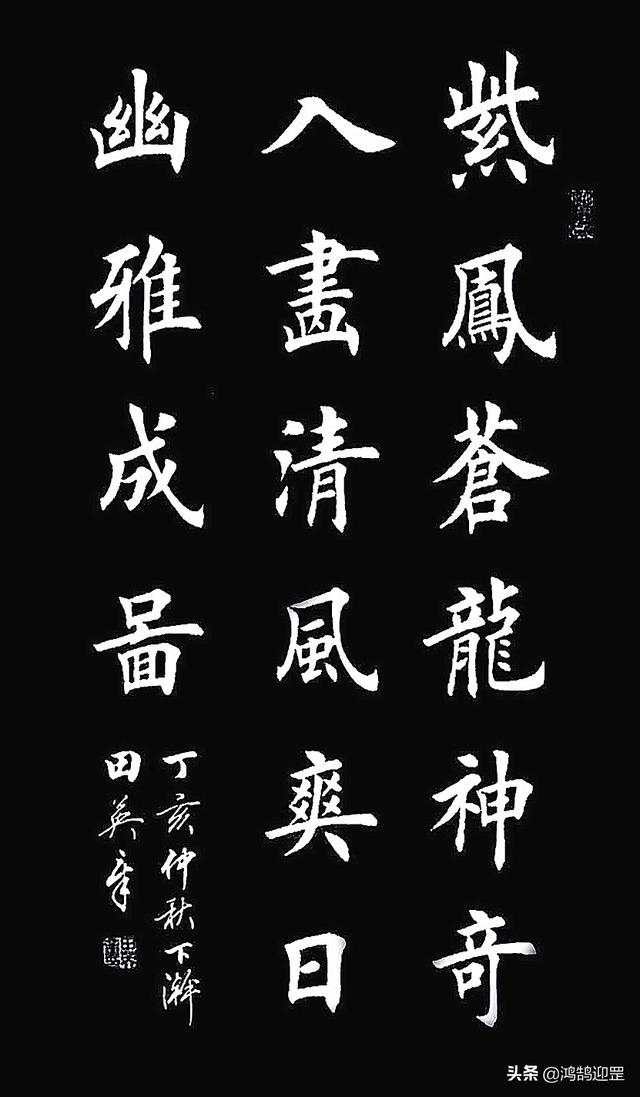 紫鳳蒼龍神奇
入畫清風爽日
幽雅成啚
丁亥仲秋下澣
田英章
头条 @鸿鹄迎罡